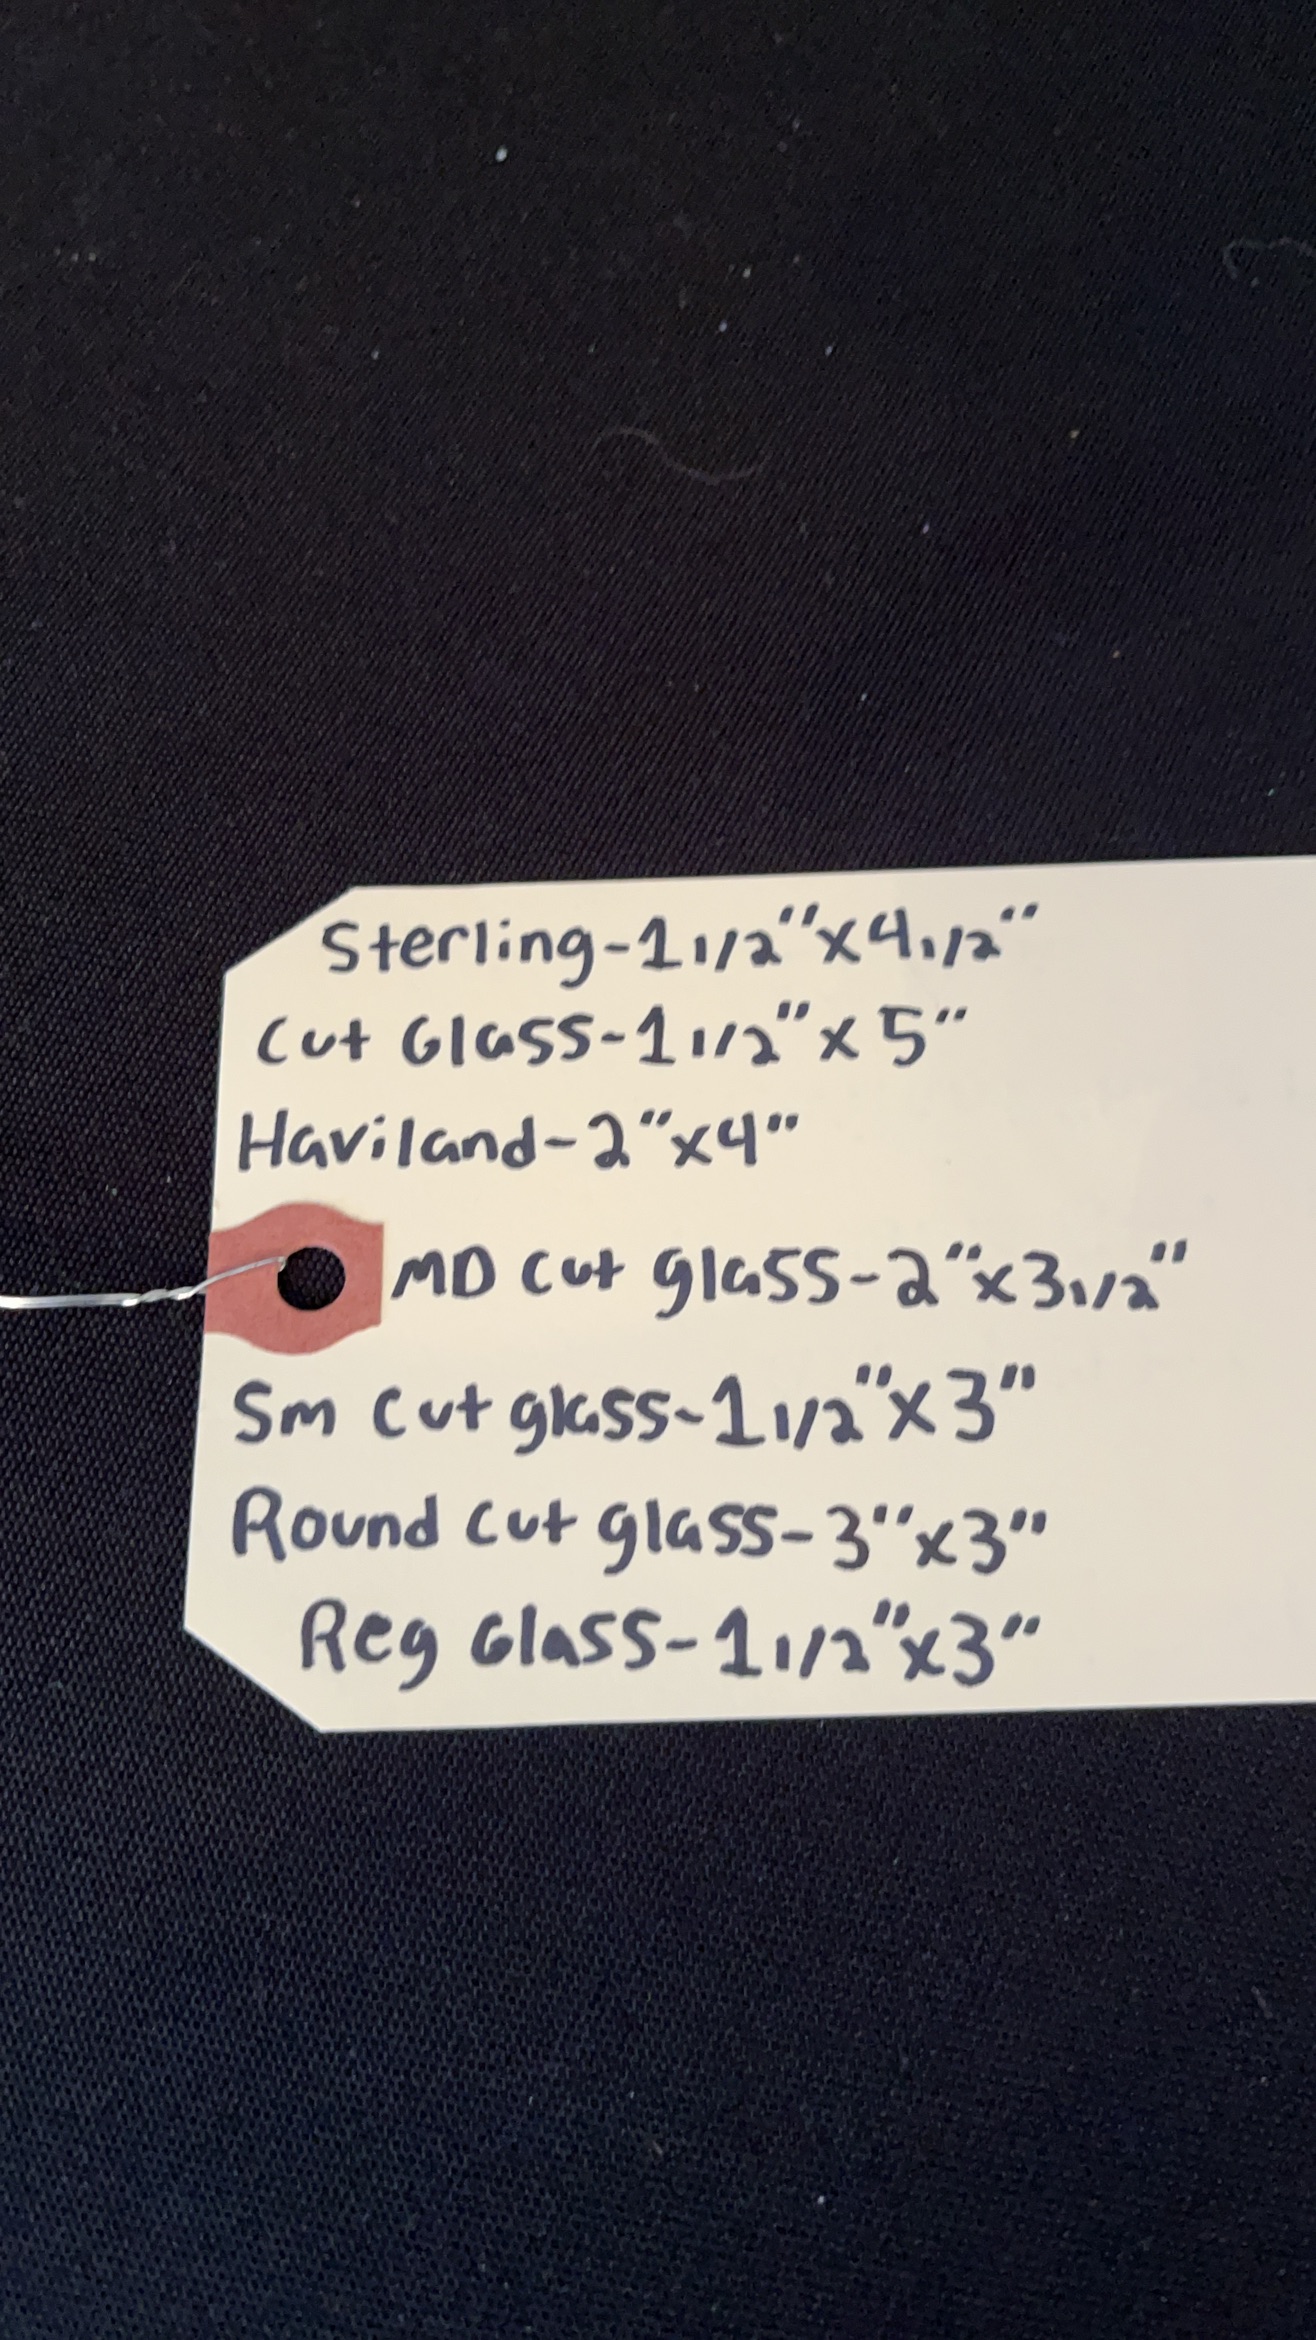 Sterling-1 1/2"x4 1/2"
Cut Glass-1 1/2"x 5"
Haviland-2"x4"
MD cut glass-2"x3 1/2"
Sm cut glass-1 1/2"x3"
Round cut glass-3"x3"
Reg Glass-1 1/2"x3"